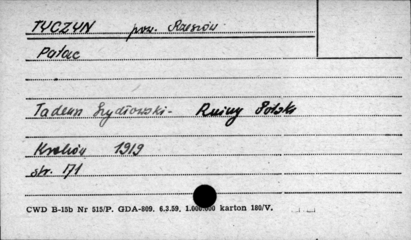 TYCZYN pow. Rzeszów
Pałac
Tadeusz Szydłowski - Ruiny Polski
Kraków 1919
str. 171
CWD B-15b Nr 515/P. GDA-809. 6.3.59. 1.000.000 karton 180/V.